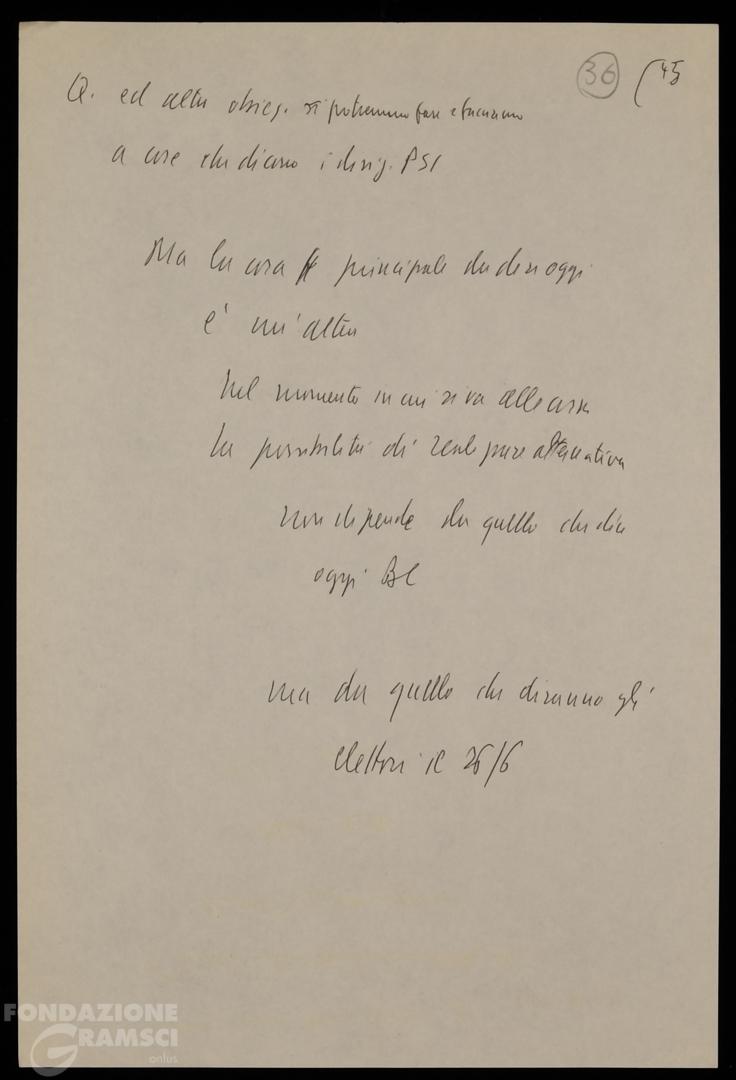 36 (45
Q. ed altre obiez. si potranno fare e facciamo
a cose che dicono i dirig. PSI
Ma la cosa principale da dire oggi
è un'altra
Nel momento in cui si va alle urne
la possibilità di reale alternativa
non dipende da quello che dica
oggi BC
ma da quello che diranno gli
elettori il 26/6
FONDAZIONE
GRAMSCI
onlus